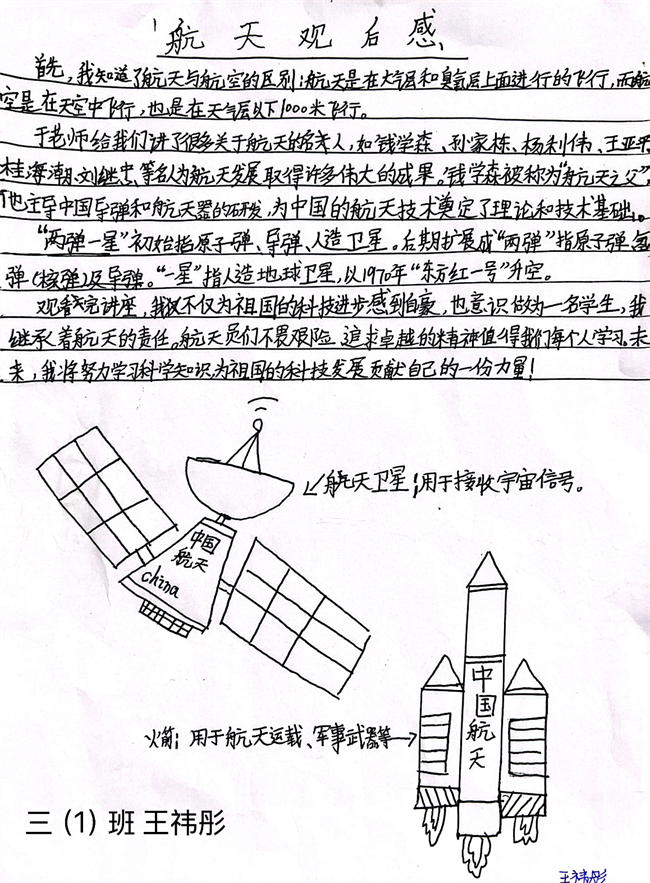 航天观后感
首先，我知道了航天与航空的区别：航天是在大气层和臭氧层上面进行的飞行，而航
空是在天空中飞行，也是在天气层以下1000米飞行。
于老师给我们讲了很多关于航天的名人，如钱学森、孙家栋、杨利伟、王亚平
桂海潮、刘继忠、等名人为航天发展取得许多伟大的成果。钱学森被称为“航天之父”，
他主导中国导弹和航天器的研发，为中国的航天技术奠定了理论和技术基础。
“两弹一星”初始指原子弹、导弹、人造卫星。后期扩展成“两弹”指原子弹、氢
弹（核弹）及导弹。“一星”指人造地球卫星，以1970年“东方红一号”升空。
观看完讲座，我仅不仅为祖国的科技进步感到自豪，也意识做为一名学生，我
继承着航天的责任。航天员们不畏艰险 追求卓越的精神值得我们每个人学习。未
来，我将努力学习科学知识，为祖国的科技发展贡献自己的一份力量！
航天卫星；用于接收宇宙信号。
中国
航天
china
中国航天
火箭；用于航天运载、军事武器等
三（1）班 王祎彤
王祎彤